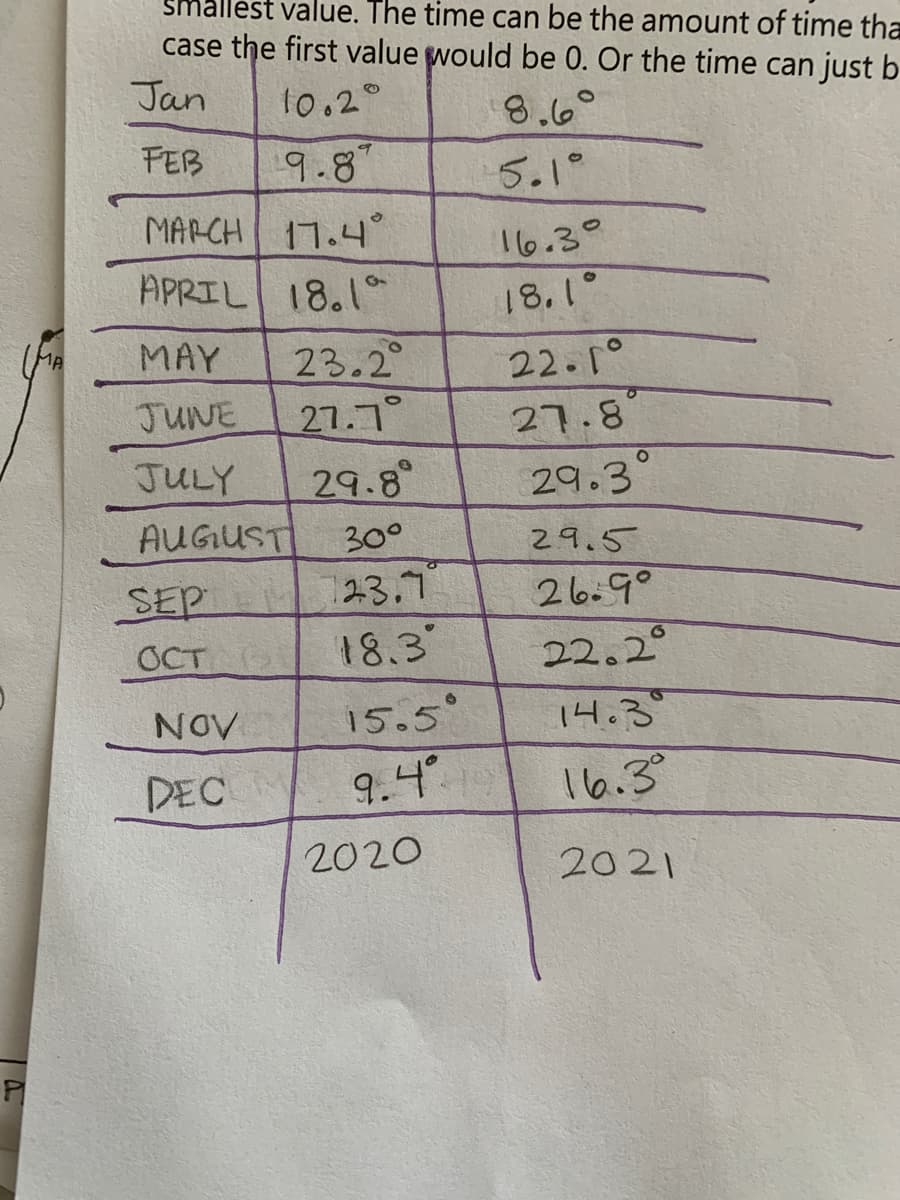 smallest value. The time can be the amount of time tha
case the first value would be 0. Or the time can just b
Jan 10.2° 8.6°
FEB 9.8° 5.1°
MARCH 17.4° 16.3°
APRIL 18.1° 18.1°
MAY 23.2° 22.1°
JUNE 27.7° 27.8°
JULY 29.8° 29.3°
AUGUST 30° 29.5
SEP 23.7° 26.9°
OCT 18.3° 22.2°
NOV 15.5° 14.3°
DEC 9.4° 16.3°
2020 2021